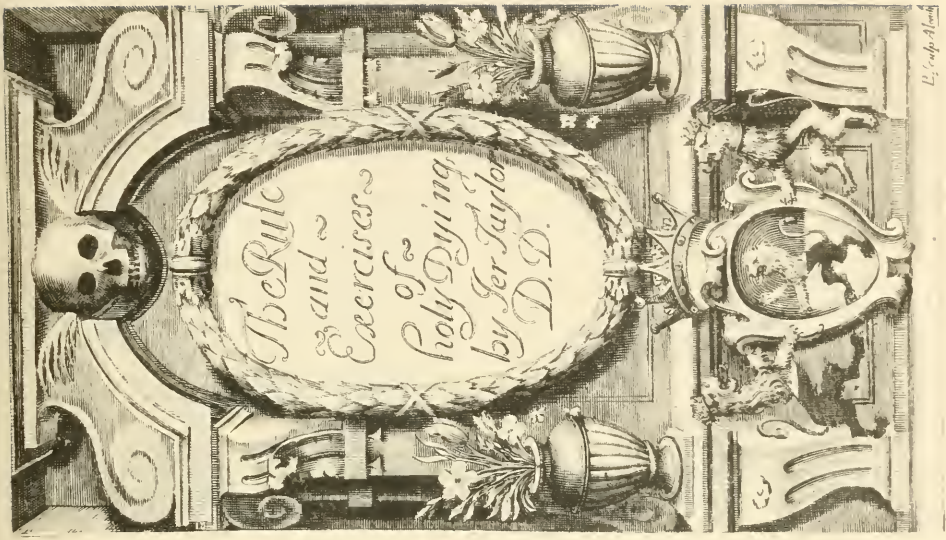 The Rule
& and
Exercises
of
holy Dying
by Jer Taylor
D. D.